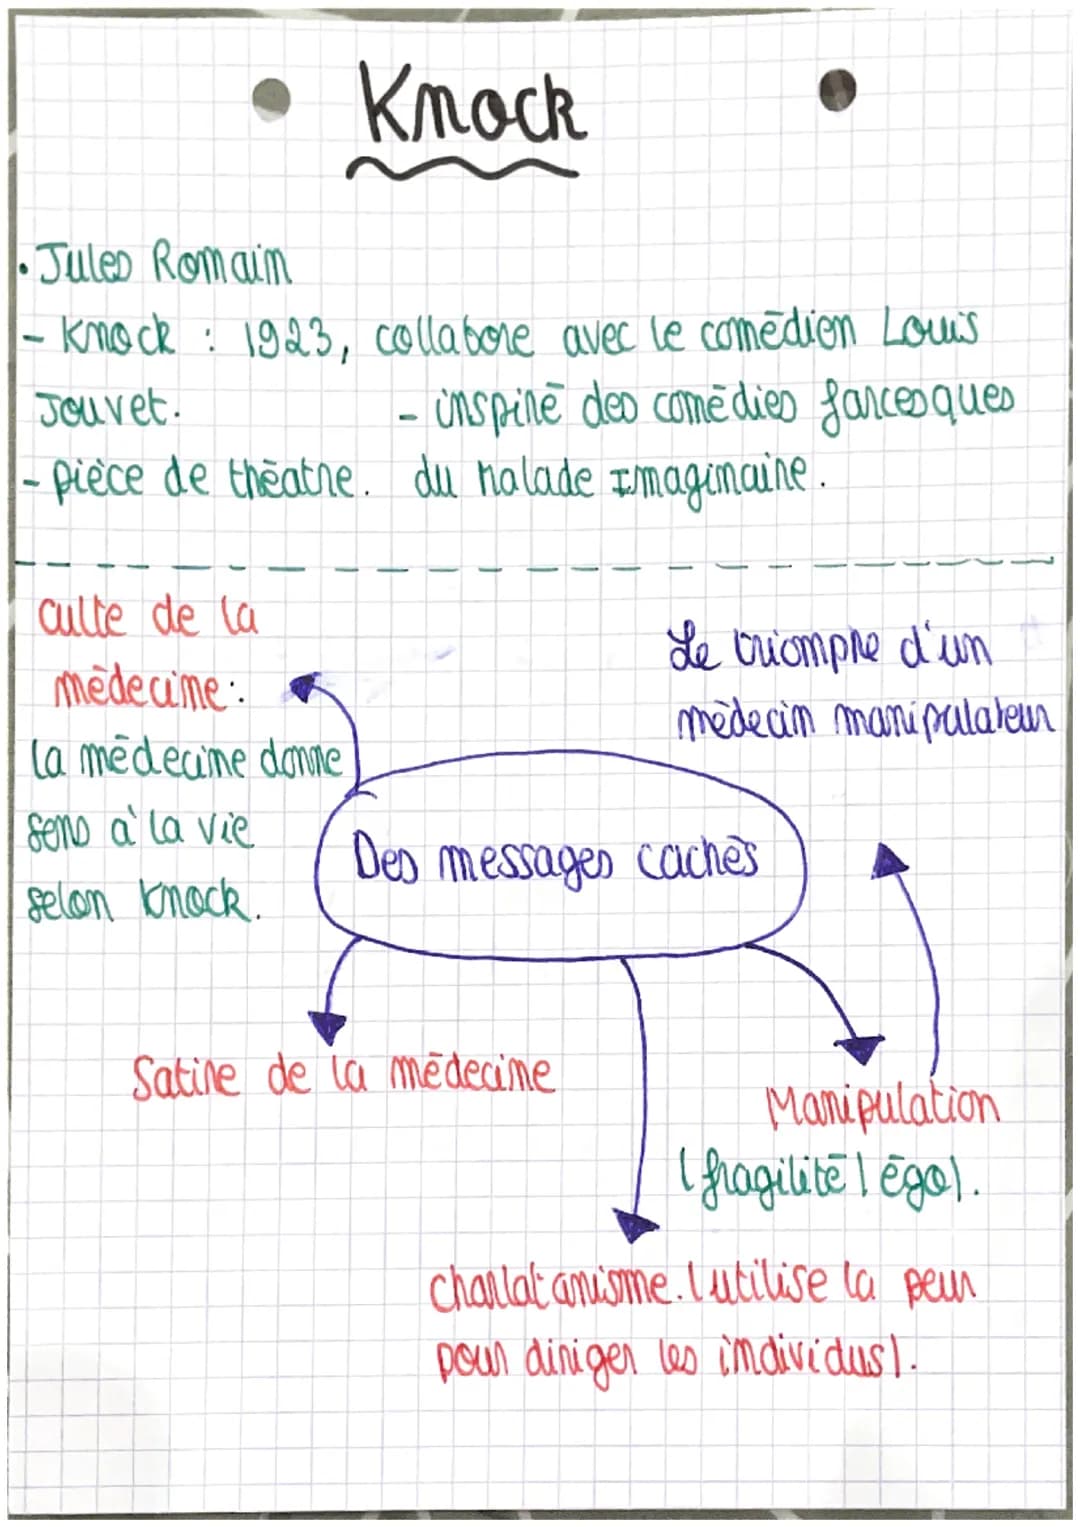 Knock
• Jules Romain
- Knock : 1923, collabore avec le comédien Louis
Jouvet.
- pièce de théatre.
- inspiré des comédies farcesques
du Malade Imaginaire.
culte de la
médecine :
la médecine donne
sens à la vie
selon Knock.
Le triomphe d'un
médecin manipulateur
Des messages cachés
Satire de la médecine
Manipulation
(fragilité / égo).
charlatanisme. (utilise la peur
pour diriger les individus).